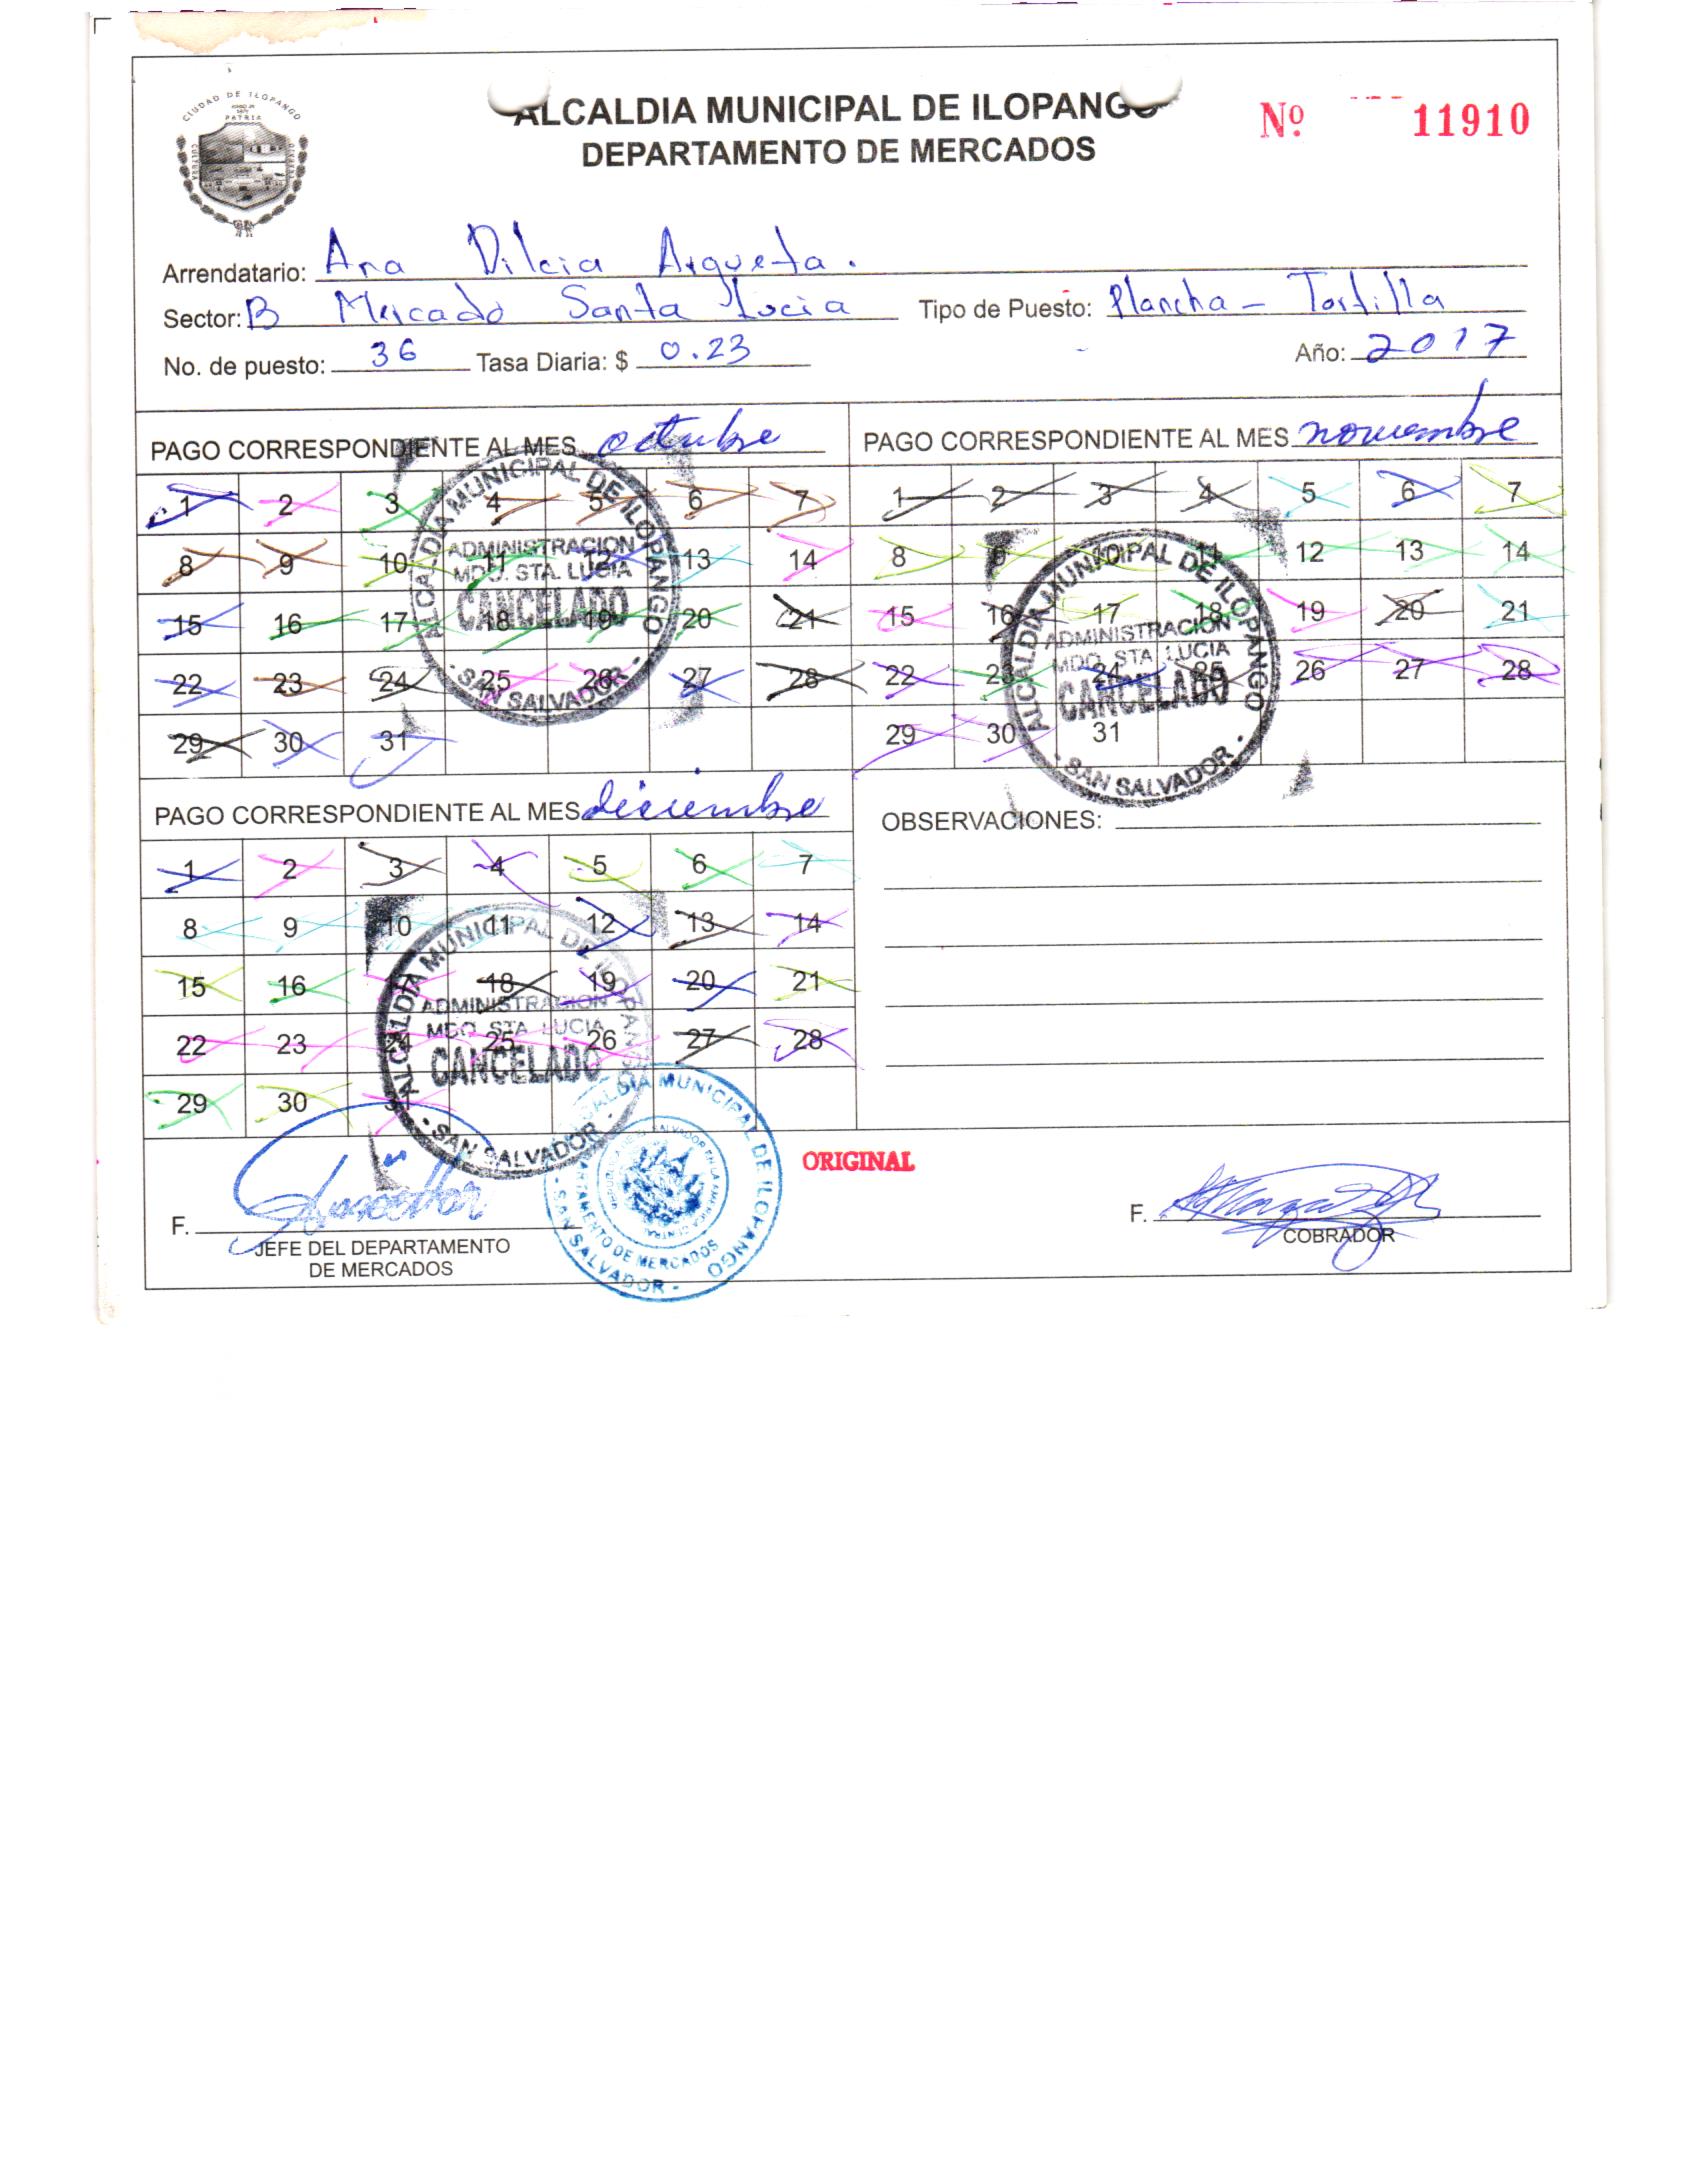 CIUDAD DE ILOPANGO
PATRIA
CULTURA
ALCALDIA MUNICIPAL DE ILOPANGO
DEPARTAMENTO DE MERCADOS
Nº 11910
Arrendatario: Ana Dilcia Argueta.
Sector: B Mercado Santa Lucia Tipo de Puesto: Plancha - Tortilla
No. de puesto: 36 Tasa Diaria: $ 0.23 Año: 2017
PAGO CORRESPONDIENTE AL MES octubre
1 2 3 4 5 6 7
8 9 10 11 12 13 14
15 16 17 18 19 20 21
22 23 24 25 26 27 28
29 30 31
ALCALDIA MUNICIPAL DE ILOPANGO
ADMINISTRACION
MDO. STA. LUCIA
CANCELADO
- SAN SALVADOR -
PAGO CORRESPONDIENTE AL MES noviembre
1 2 3 4 5 6 7
8 9 10 11 12 13 14
15 16 17 18 19 20 21
22 23 24 25 26 27 28
29 30 31
ALCALDIA MUNICIPAL DE ILOPANGO
ADMINISTRACION
MDO. STA. LUCIA
CANCELADO
- SAN SALVADOR -
PAGO CORRESPONDIENTE AL MES diciembre
1 2 3 4 5 6 7
8 9 10 11 12 13 14
15 16 17 18 19 20 21
22 23 24 25 26 27 28
29 30 31
ALCALDIA MUNICIPAL DE ILOPANGO
ADMINISTRACION
MDO. STA. LUCIA
CANCELADO
- SAN SALVADOR -
OBSERVACIONES:
ALCALDIA MUNICIPAL DE ILOPANGO
DEPARTAMENTO DE MERCADOS
- SAN SALVADOR -
ORIGINAL
F.
JEFE DEL DEPARTAMENTO
DE MERCADOS
F.
COBRADOR